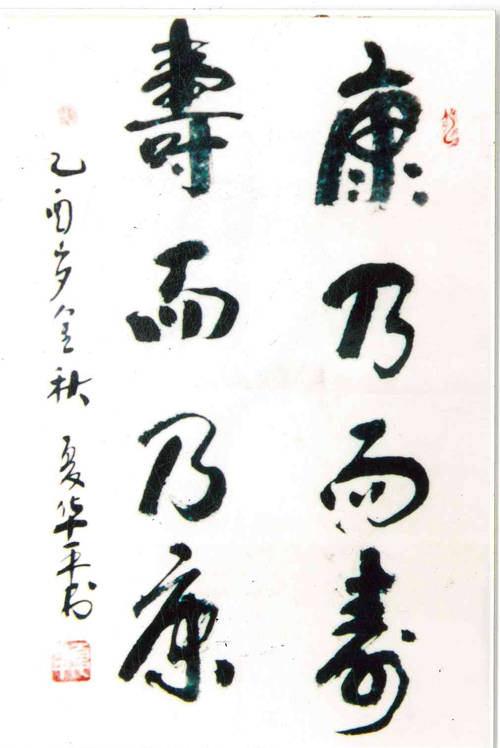 康乃而壽
壽而乃康
乙酉岁金秋 夏华平书